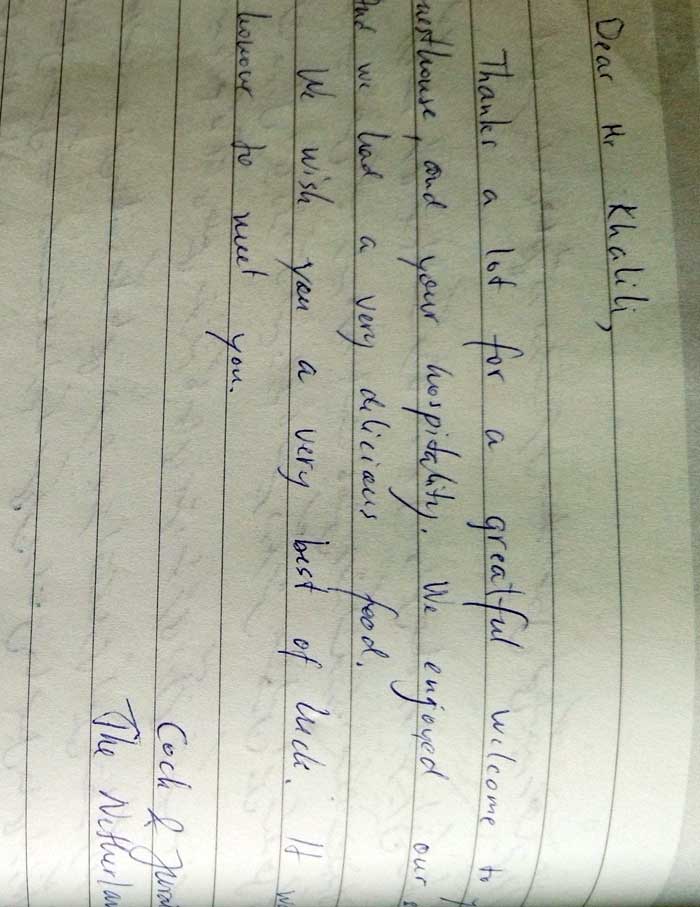 Dear Mr Khalili,
Thanks a lot for a greatful wilcome to
guesthouse, and your hospitality. We engoyed our
And we had a very dilicious food.
We wish you a very best of luck. It
honour to meet you.
Cock &
The Netherlan